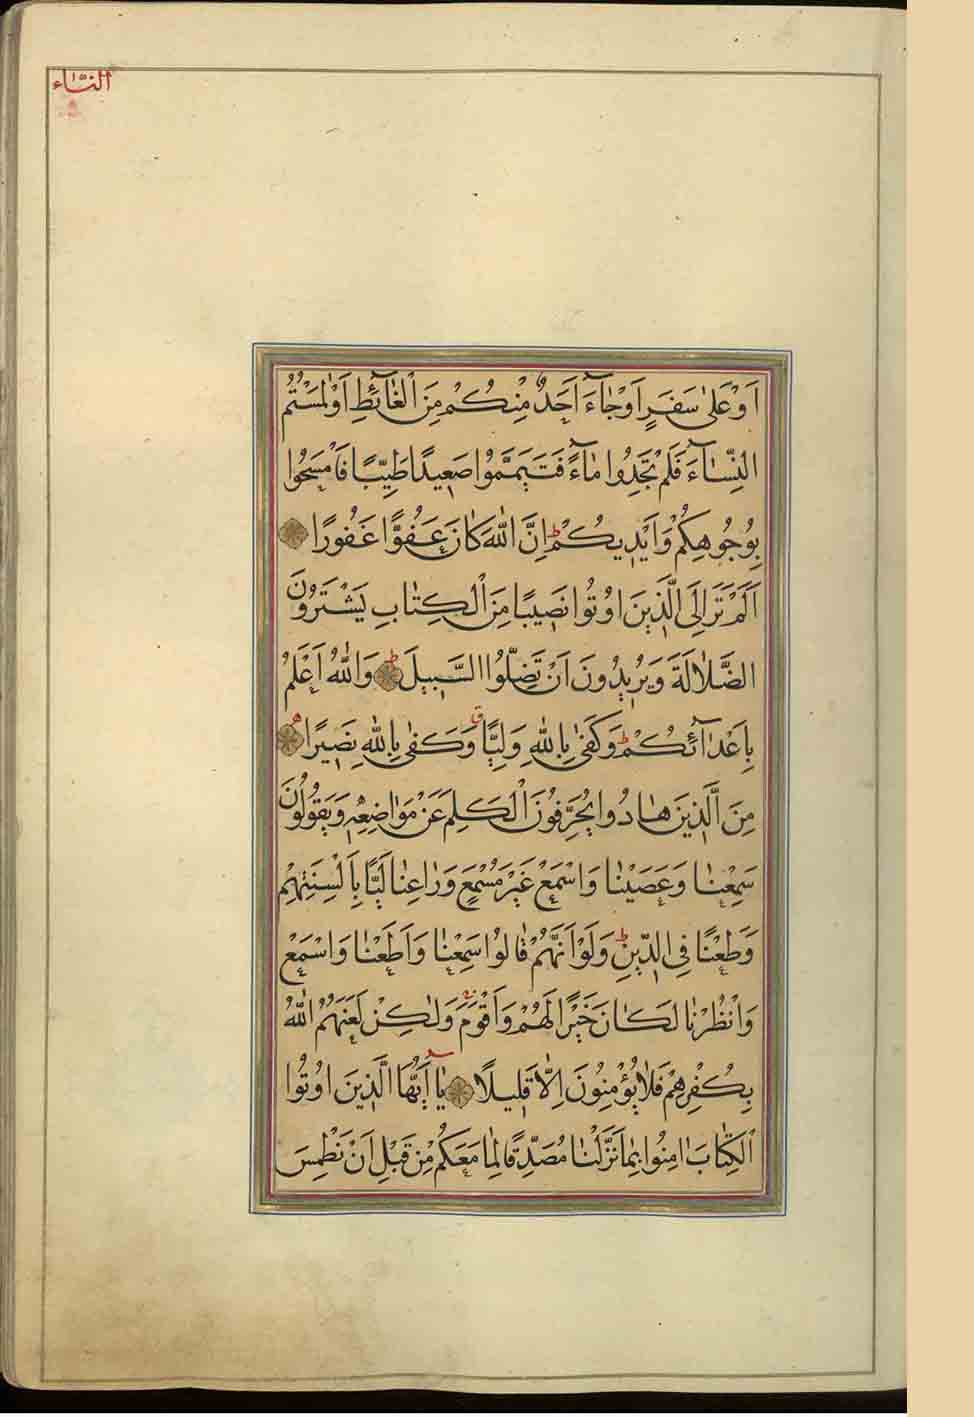 النساء
اَوْ عَلٰى سَفَرٍ اَوْ جَٓاءَ اَحَدٌ مِنْكُمْ مِنَ الْغَٓائِطِ اَوْ لٰمَسْتُمُ
النِّسَٓاءَ فَلَمْ تَجِدُوا مَٓاءً فَتَيَمَّمُوا صَعِيدًا طَيِّبًا فَامْسَحُوا
بِوُجُوهِكُمْ وَاَيْدِيكُمْ ط اِنَّ اللّٰهَ كَانَ عَفُوًّا غَفُورًا
اَلَمْ تَرَ اِلَى الَّذِينَ اوُتُوا نَصِيبًا مِنَ الْكِتَابِ يَشْتَرُونَ
الضَّلَالَةَ وَيُرِيدُونَ اَنْ تَضِلُّوا السَّبِيلَ ط وَاللّٰهُ اَعْلَمُ
بِاَعْدَٓائِكُمْ ط وَكَفٰى بِاللّٰهِ وَلِيًّا ق وَكَفٰى بِاللّٰهِ نَصِيرًا
مِنَ الَّذِينَ هَادُوا يُحَرِّفُونَ الْكَلِمَ عَنْ مَوَاضِعِهٖ وَيَقُولُونَ
سَمِعْنَا وَعَصَيْنَا وَاسْمَعْ غَيْرَ مُسْمَعٍ وَرَاعِنَا لَيًّا بِاَلْسِنَتِهِمْ
وَطَعْنًا فِى الدِّينِ ط وَلَوْ اَنَّهُمْ قَالُوا سَمِعْنَا وَاَطَعْنَا وَاسْمَعْ
وَانْظُرْنَا لَكَانَ خَيْرًا لَهُمْ وَاَقْوَمَ وَلٰكِنْ لَعَنَهُمُ اللّٰهُ
بِكُفْرِهِمْ فَلَا يُؤْمِنُونَ اِلَّا قَلِيلًا يَٓا اَيُّهَا الَّذِينَ اوُتُوا
الْكِتَابَ اٰمِنُوا بِمَا نَزَّلْنَا مُصَدِّقًا لِمَا مَعَكُمْ مِنْ قَبْلِ اَنْ نَطْمِسَ